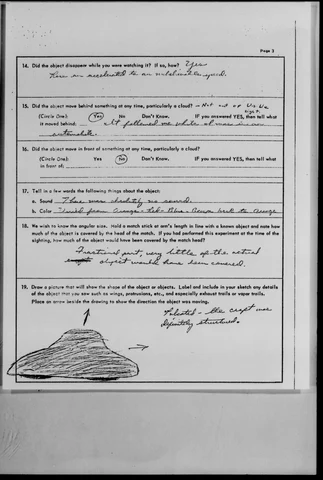 Page 3
14. Did the object disappear while you were watching it? If so, how? Yes
an accelerated to an
15. Did the object move behind something at any time, particularly a cloud? - Not out of
(Circle One): Yes No Don't Know. IF you answered YES, then tell what
it moved behind: It followed me while at
automobile
16. Did the object move in front of something at any time, particularly a cloud?
(Circle One): Yes No Don't Know. IF you answered YES, then tell what
in front of:
17. Tell in a few words the following things about the object:
a. Sound There was absolutely no sound.
b. Color from Orange - Red - Blue - Green back to Orange
18. We wish to know the angular size. Hold a match stick at arm's length in line with a known object and note how
much of the object is covered by the head of the match. If you had performed this experiment at the time of the
sighting, how much of the object would have been covered by the match head?
Fractional part, very little of the actual
object would have been covered.
19. Draw a picture that will show the shape of the object or objects. Label and include in your sketch any details
of the object that you saw such as wings, protrusions, etc., and especially exhaust trails or vapor trails.
Place an arrow beside the drawing to show the direction the object was moving.
- the craft was
definitely structured.